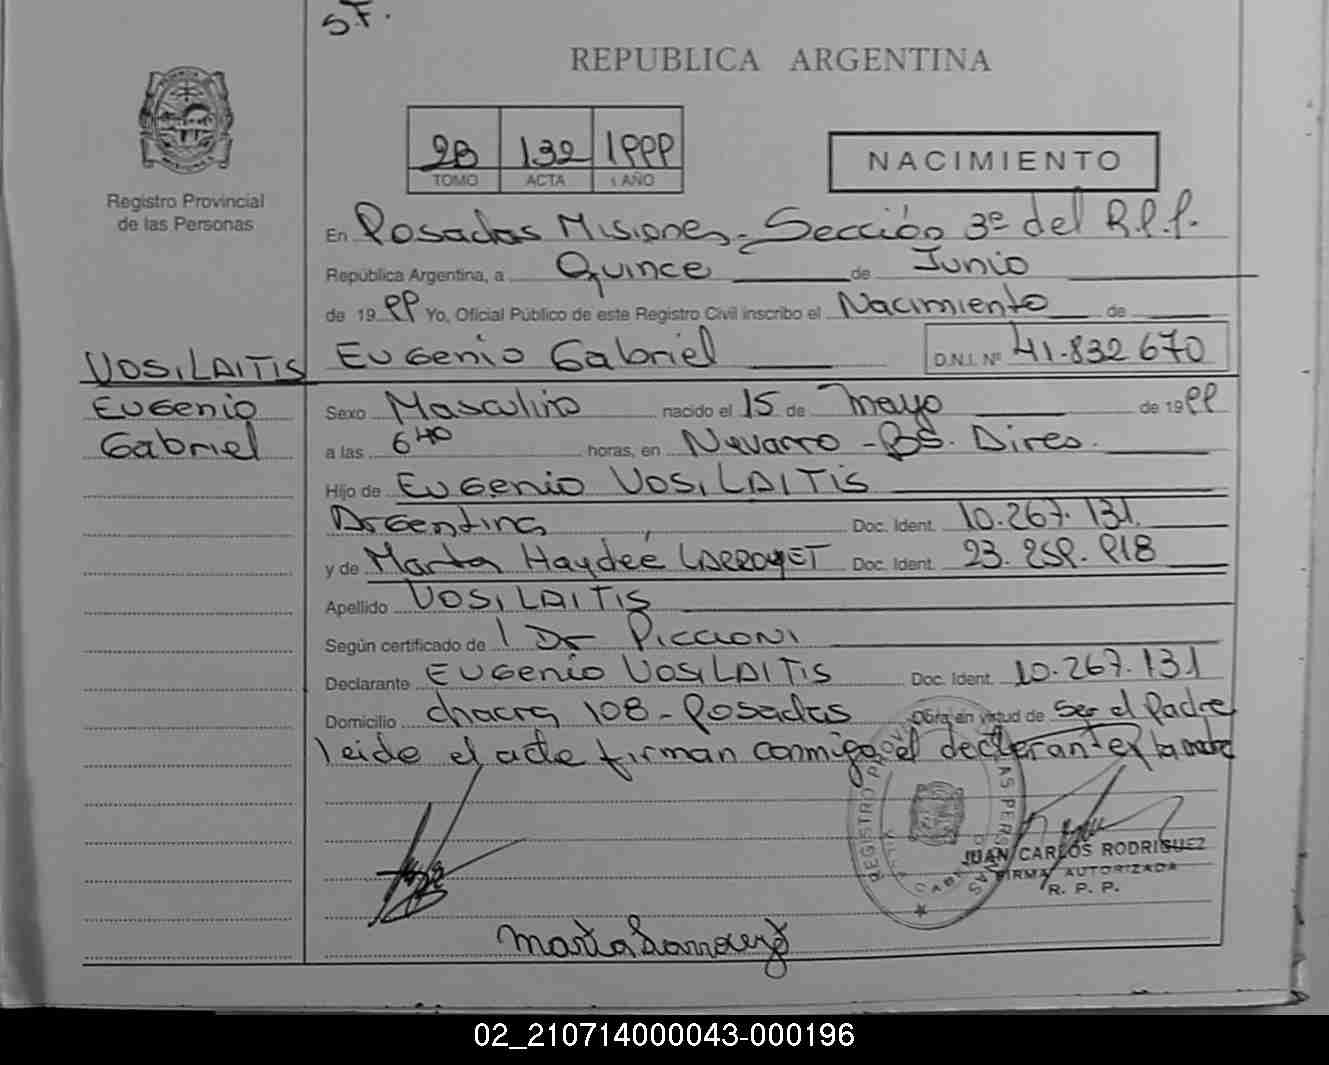 S.F.
REPUBLICA ARGENTINA
2B 132 1999
TOMO ACTA AÑO
NACIMIENTO
Registro Provincial
de las Personas
En Posadas Misiones - Sección 3º del R.P.P.
República Argentina, a Quince de Junio
de 1999 Yo, Oficial Público de este Registro Civil inscribo el Nacimiento de
VOSILAITIS Eugenio Gabriel D.N.I. Nº 41.832 670
Eugenio
Gabriel
Sexo Masculino nacido el 15 de Mayo de 1999
a las 6 40 horas, en Navarro - BS. Aires.
Hijo de Eugenio VOSILAITIS
Argentina Doc. Ident. 10.267.131
y de Marta Haydée LARROYET Doc. Ident. 23.259.918
Apellido VOSILAITIS
Según certificado de Dr PICCIONI
Declarante EUGENIO VOSILAITIS Doc. Ident. 10.267.131
Domicilio chacra 108 - Posadas Obra en virtud de ser el Padre
leida el acta firman conmigo el declarante y la madre
REGISTRO PROV DE LAS PERSONAS
JUAN CARLOS RODRIGUEZ
FIRMA AUTORIZADA
R. P. P.
Marta
02_210714000043-000196